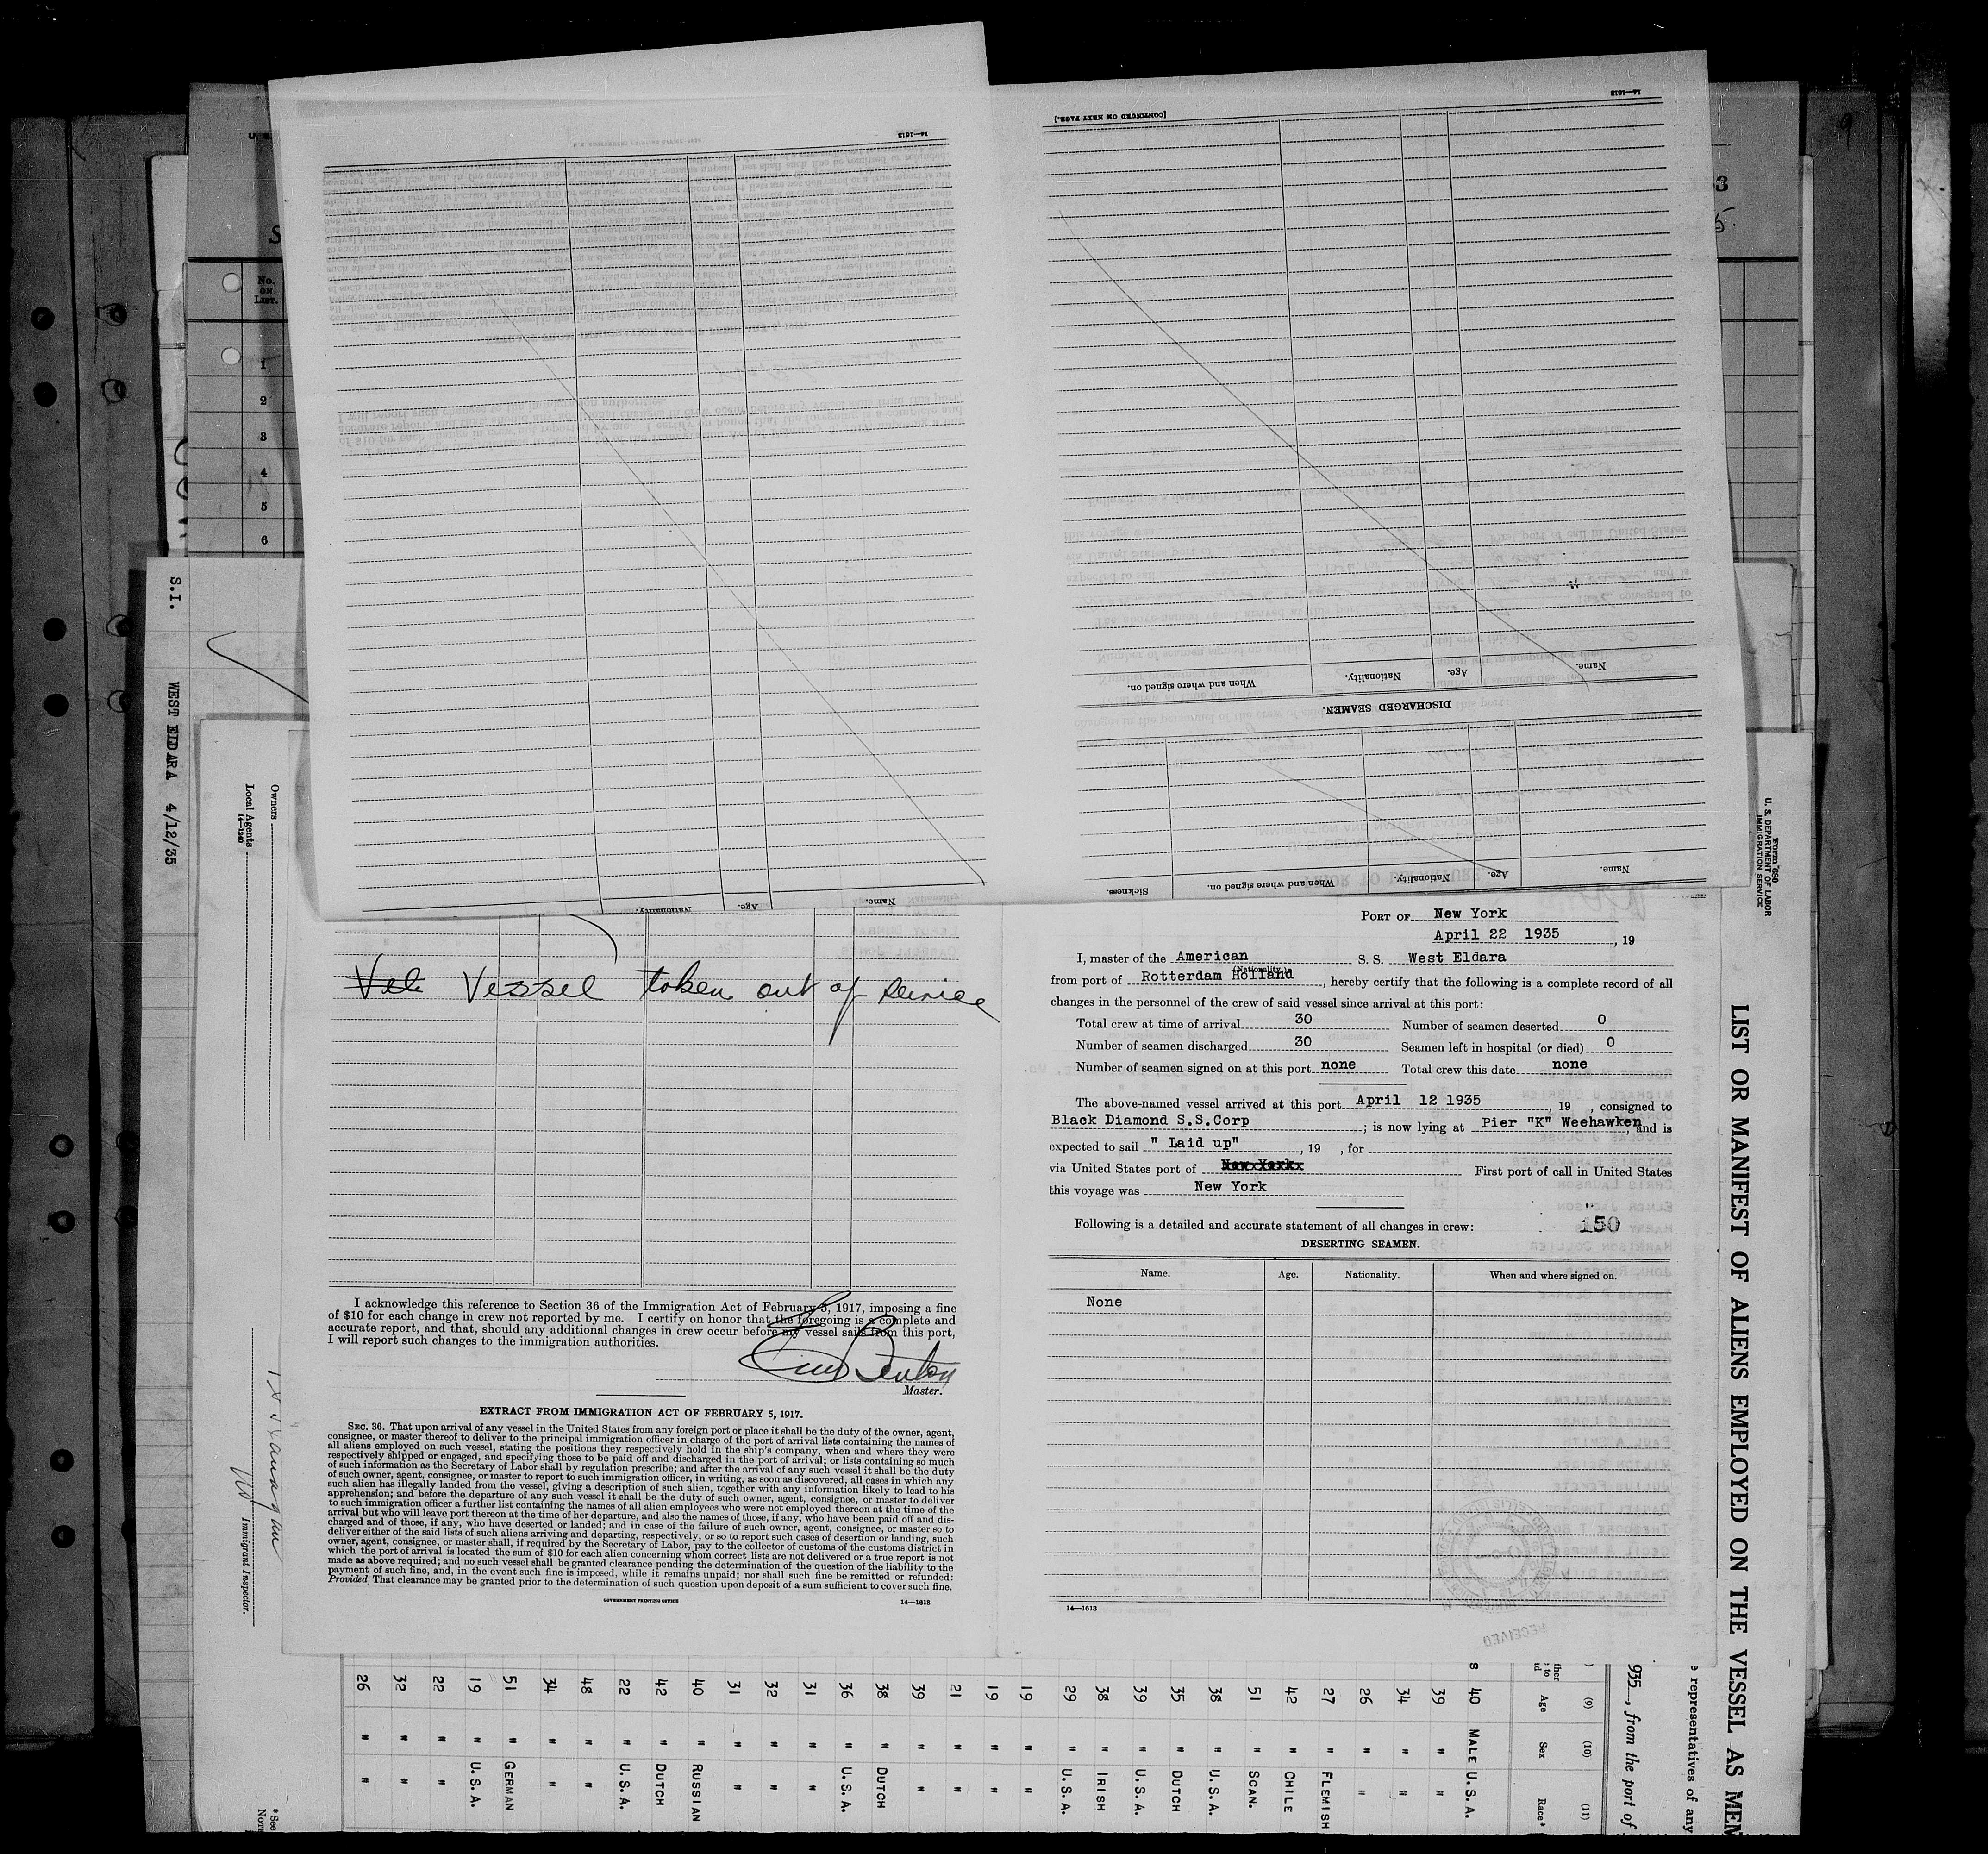 14—1613
Name.
Age.
Nationality.
[CONTINUED ON NEXT PAGE.]
14—1613
Name.
Age.
Nationality.
When and where signed on.
Sickness.
DISCHARGED SEAMEN.
Name.
Age.
Nationality.
When and where signed on.
No. ON LIST.
1
2
3
4
5
6
S.I. WEST ELDARA 4/12/35
Owners
Local Agents
14—1240
Immigrant Inspector.
Vel Vessel taken out of Service
I acknowledge this reference to Section 36 of the Immigration Act of February 5, 1917, imposing a fine
of $10 for each change in crew not reported by me. I certify on honor that the foregoing is a complete and
accurate report, and that, should any additional changes in crew occur before my vessel sails from this port,
I will report such changes to the immigration authorities.
Master.
EXTRACT FROM IMMIGRATION ACT OF FEBRUARY 5, 1917.
SEC. 36. That upon arrival of any vessel in the United States from any foreign port or place it shall be the duty of the owner, agent,
consignee, or master thereof to deliver to the principal immigration officer in charge of the port of arrival lists containing the names of
all aliens employed on such vessel, stating the positions they respectively hold in the ship's company, when and where they were
respectively shipped or engaged, and specifying those to be paid off and discharged in the port of arrival; or lists containing so much
of such information as the Secretary of Labor shall by regulation prescribe; and after the arrival of any such vessel it shall be the duty
of such owner, agent, consignee, or master to report to such immigration officer, in writing, as soon as discovered, all cases in which any
such alien has illegally landed from the vessel, giving a description of such alien, together with any information likely to lead to his
apprehension; and before the departure of any such vessel it shall be the duty of such owner, agent, consignee, or master to deliver
to such immigration officer a further list containing the names of all alien employees who were not employed thereon at the time of the
arrival but who will leave port thereon at the time of her departure, and also the names of those, if any, who have been paid off and dis-
charged and of those, if any, who have deserted or landed; and in case of the failure of such owner, agent, consignee, or master so to
deliver either of the said lists of such aliens arriving and departing, respectively, or so to report such cases of desertion or landing, such
owner, agent, consignee, or master shall, if required by the Secretary of Labor, pay to the collector of customs of the customs district in
which the port of arrival is located the sum of $10 for each alien concerning whom correct lists are not delivered or a true report is not
made as above required; and no such vessel shall be granted clearance pending the determination of the question of the liability to the
payment of such fine, and, in the event such fine is imposed, while it remains unpaid; nor shall such fine be remitted or refunded:
Provided That clearance may be granted prior to the determination of such question upon deposit of a sum sufficient to cover such fine.
GOVERNMENT PRINTING OFFICE 14—1613
PORT OF New York
April 22 1935, 19
I, master of the American S. S. West Eldara
(Nationality.)
from port of Rotterdam Holland, hereby certify that the following is a complete record of all
changes in the personnel of the crew of said vessel since arrival at this port:
Total crew at time of arrival 30 Number of seamen deserted 0
Number of seamen discharged 30 Seamen left in hospital (or died) 0
Number of seamen signed on at this port none Total crew this date none
The above-named vessel arrived at this port April 12 1935, 19 , consigned to
Black Diamond S.S.Corp ; is now lying at Pier "K" Weehawken, and is
expected to sail " Laid up", 19 , for
via United States port of New York First port of call in United States
this voyage was New York
Following is a detailed and accurate statement of all changes in crew: 150
DESERTING SEAMEN.
Name. Age. Nationality. When and where signed on.
None
14—1613
RECEIVED
Form 680
U. S. DEPARTMENT OF LABOR
IMMIGRATION SERVICE
LIST OR MANIFEST OF ALIENS EMPLOYED ON THE VESSEL AS MEM
e representatives of any
935, from the port of
(9) (10) (11)
Age Sex Race*
40 MALE U. S. A.
39 " "
34 " "
26 " "
27 " FLEMISH
42 " CHILE
51 " SCAN.
38 " U. S. A.
35 " DUTCH
39 " U. S. A.
38 " IRISH
29 " U. S. A.
19 " "
19 " "
21 " "
39 " "
38 " DUTCH
36 " U. S. A.
31 " "
32 " "
31 " "
40 " RUSSIAN
42 " DUTCH
22 " U. S. A.
48 " "
34 " "
51 " GERMAN
19 " U. S. A.
22 " "
32 " "
26 " "
*See
NOTE